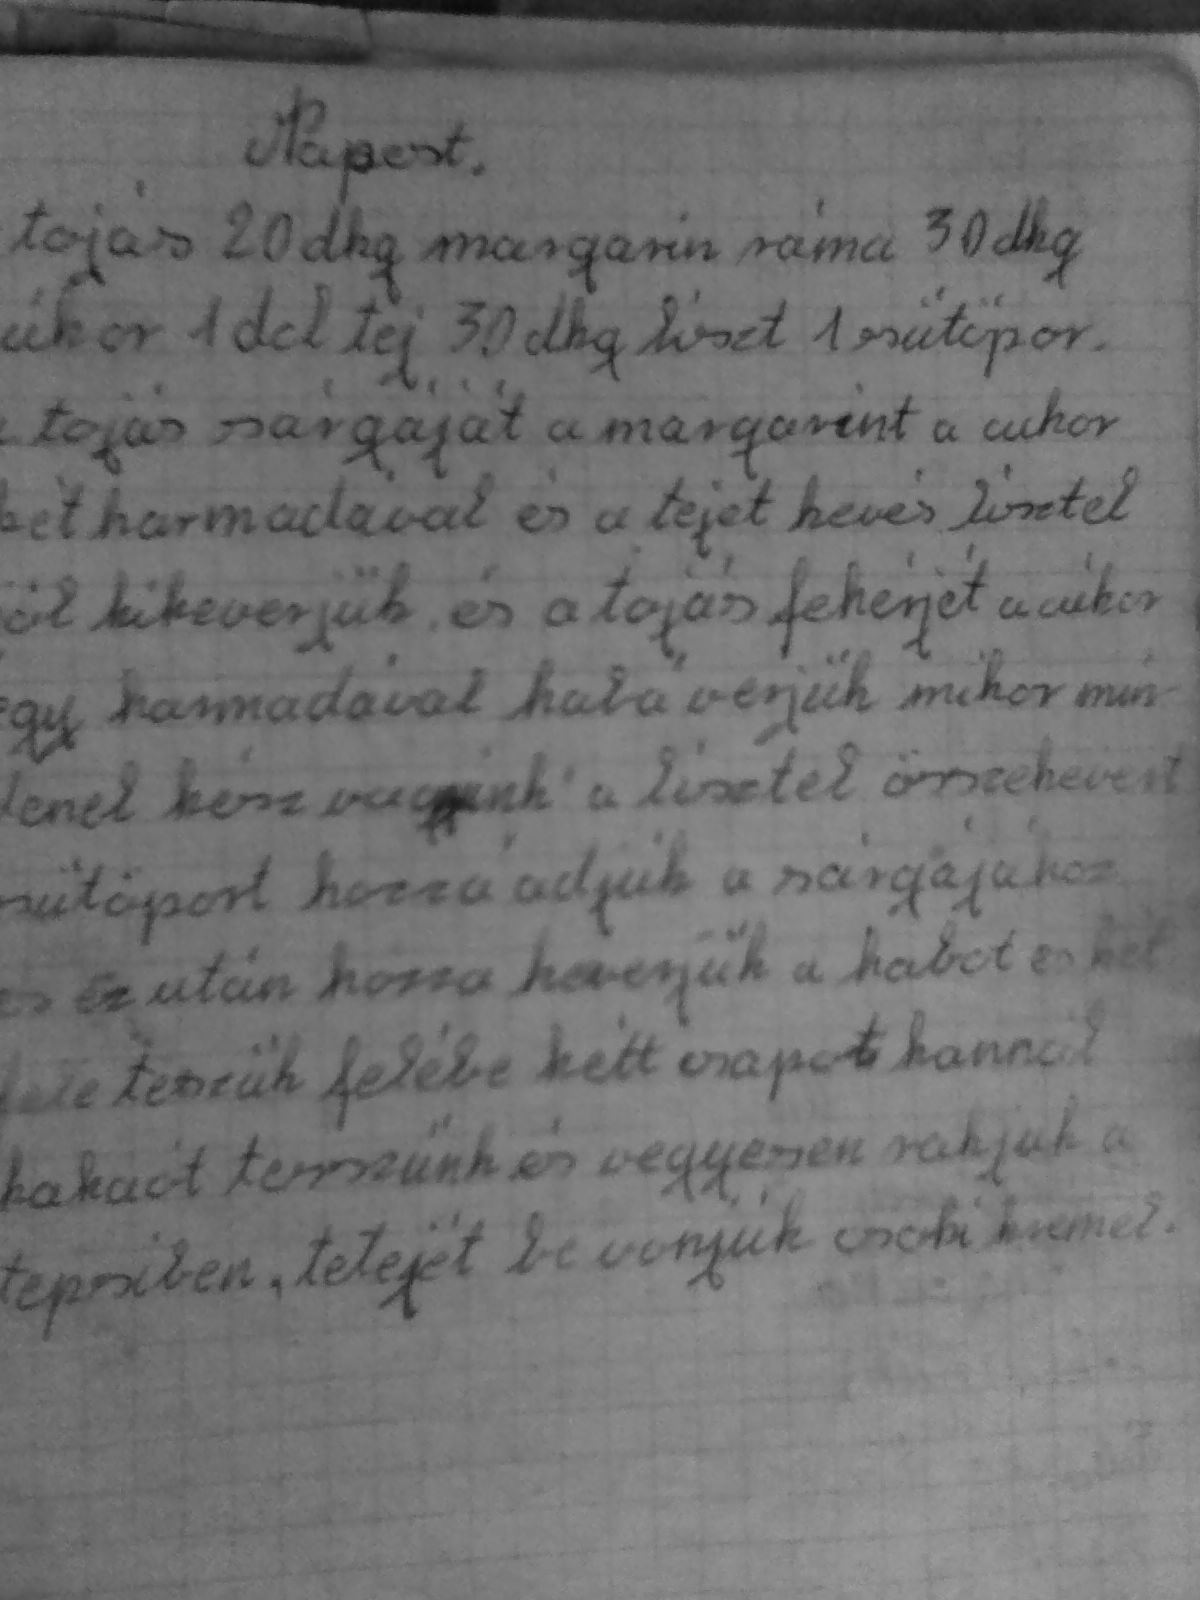 Napest.
tojás 20 dkg margarin ráma 30 dkg
cúkor 1 del tej 30 dkg liszt 1 sütöpor.
a tojás sárgáját a margarint a cukor
két harmadával és a tejet kevés lisztel
jól kikeverjük és a tojás fehérjét a cúkor
egy harmadával habá verjük mikor min-
denel kész vagyunk a lisztel összekevert
sütöport hozzá adjuk a sárgájához
és ez után hozza keverjük a habot es két
fele teszük felébe kétt csapot kannál
kakaót teszünk és vegyesen rakjuk a
tepsiben, tetejét be vonjúk csoki kremel.